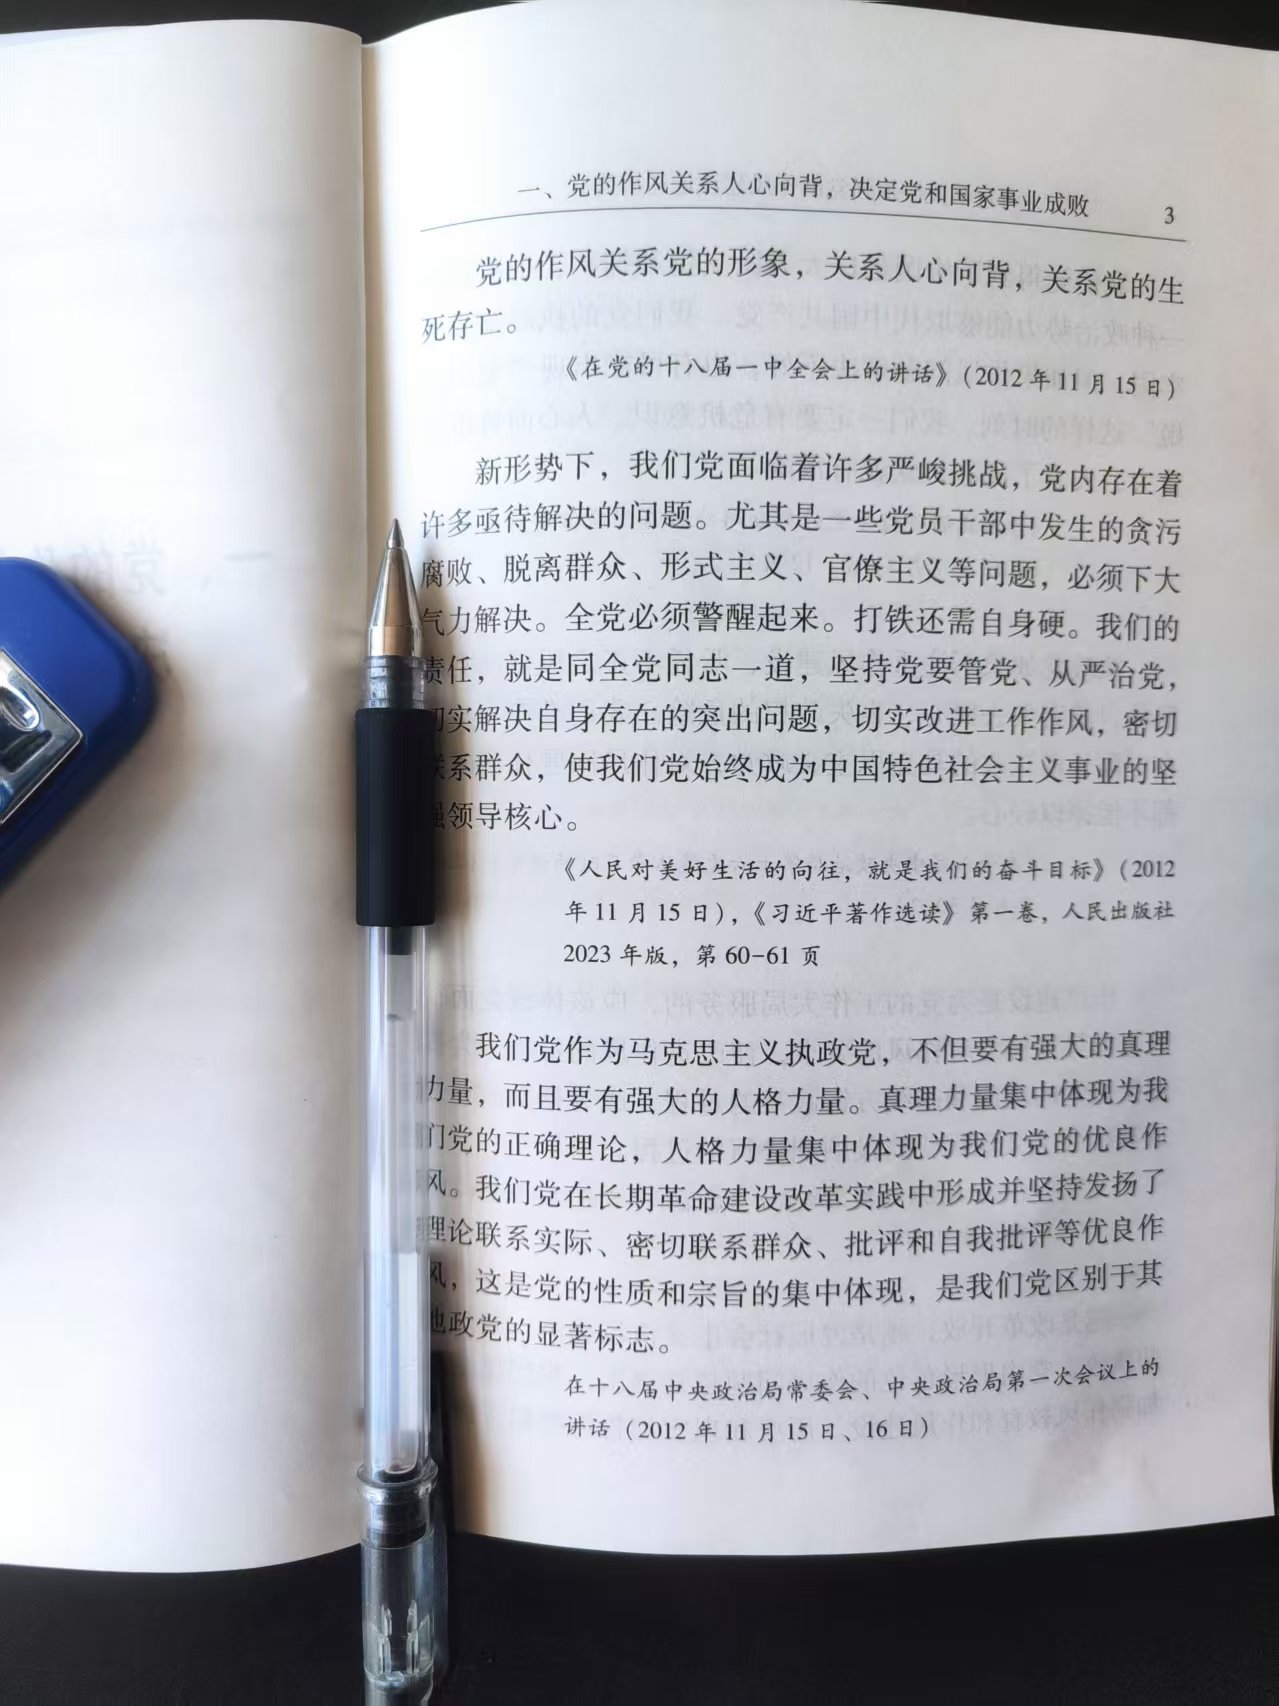 一、党的作风关系人心向背，决定党和国家事业成败 3
党的作风关系党的形象，关系人心向背，关系党的生
死存亡。
《在党的十八届一中全会上的讲话》（2012年11月15日）
新形势下，我们党面临着许多严峻挑战，党内存在着
许多亟待解决的问题。尤其是一些党员干部中发生的贪污
腐败、脱离群众、形式主义、官僚主义等问题，必须下大
气力解决。全党必须警醒起来。打铁还需自身硬。我们的
责任，就是同全党同志一道，坚持党要管党、从严治党，
切实解决自身存在的突出问题，切实改进工作作风，密切
联系群众，使我们党始终成为中国特色社会主义事业的坚
强领导核心。
《人民对美好生活的向往，就是我们的奋斗目标》（2012
年11月15日），《习近平著作选读》第一卷，人民出版社
2023年版，第60-61页
我们党作为马克思主义执政党，不但要有强大的真理
力量，而且要有强大的人格力量。真理力量集中体现为我
们党的正确理论，人格力量集中体现为我们党的优良作
风。我们党在长期革命建设改革实践中形成并坚持发扬了
理论联系实际、密切联系群众、批评和自我批评等优良作
风，这是党的性质和宗旨的集中体现，是我们党区别于其
他政党的显著标志。
在十八届中央政治局常委会、中央政治局第一次会议上的
讲话（2012年11月15日、16日）